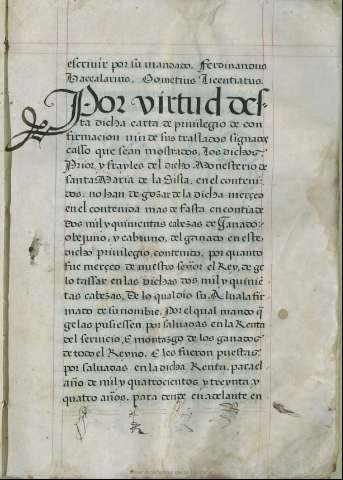 escrivir por su mandado. Ferdinandus
Baccalarius. Gometius licentiatus.
Por virtud des-
ta dicha carta de privilegio de con
firmacion nin de sus traslados signados
casso que sean mostrados, los dichos
Prior, y frayles del dicho Monesterio de
santa Maria de la Sisla, en el conteni-
dos, no han de gozar de la dicha merçeo
en el contenida mas de fasta en contia de
dos mil y quinientas cabezas de Ganado
obejuno, y cabruno, del ganado en este
dicho privilegio contento, por quanto
fue merçeo de nuestro señor el Rey, de ge
lo tassar en las dichas dos mil y quinie
tas cabezas, De lo qual dio su Aluala fir
mado de su nombre. Por el qual mando q
ge las pusiessen por salvadas en la Renta
del servicio, E montazgo de los ganados
de todo el Reyno. E les fueron puestas
por salvadas en la dicha Renta, para el
año de mil y quatrocientos y treynta, y
quatro años, para dende en adelante en